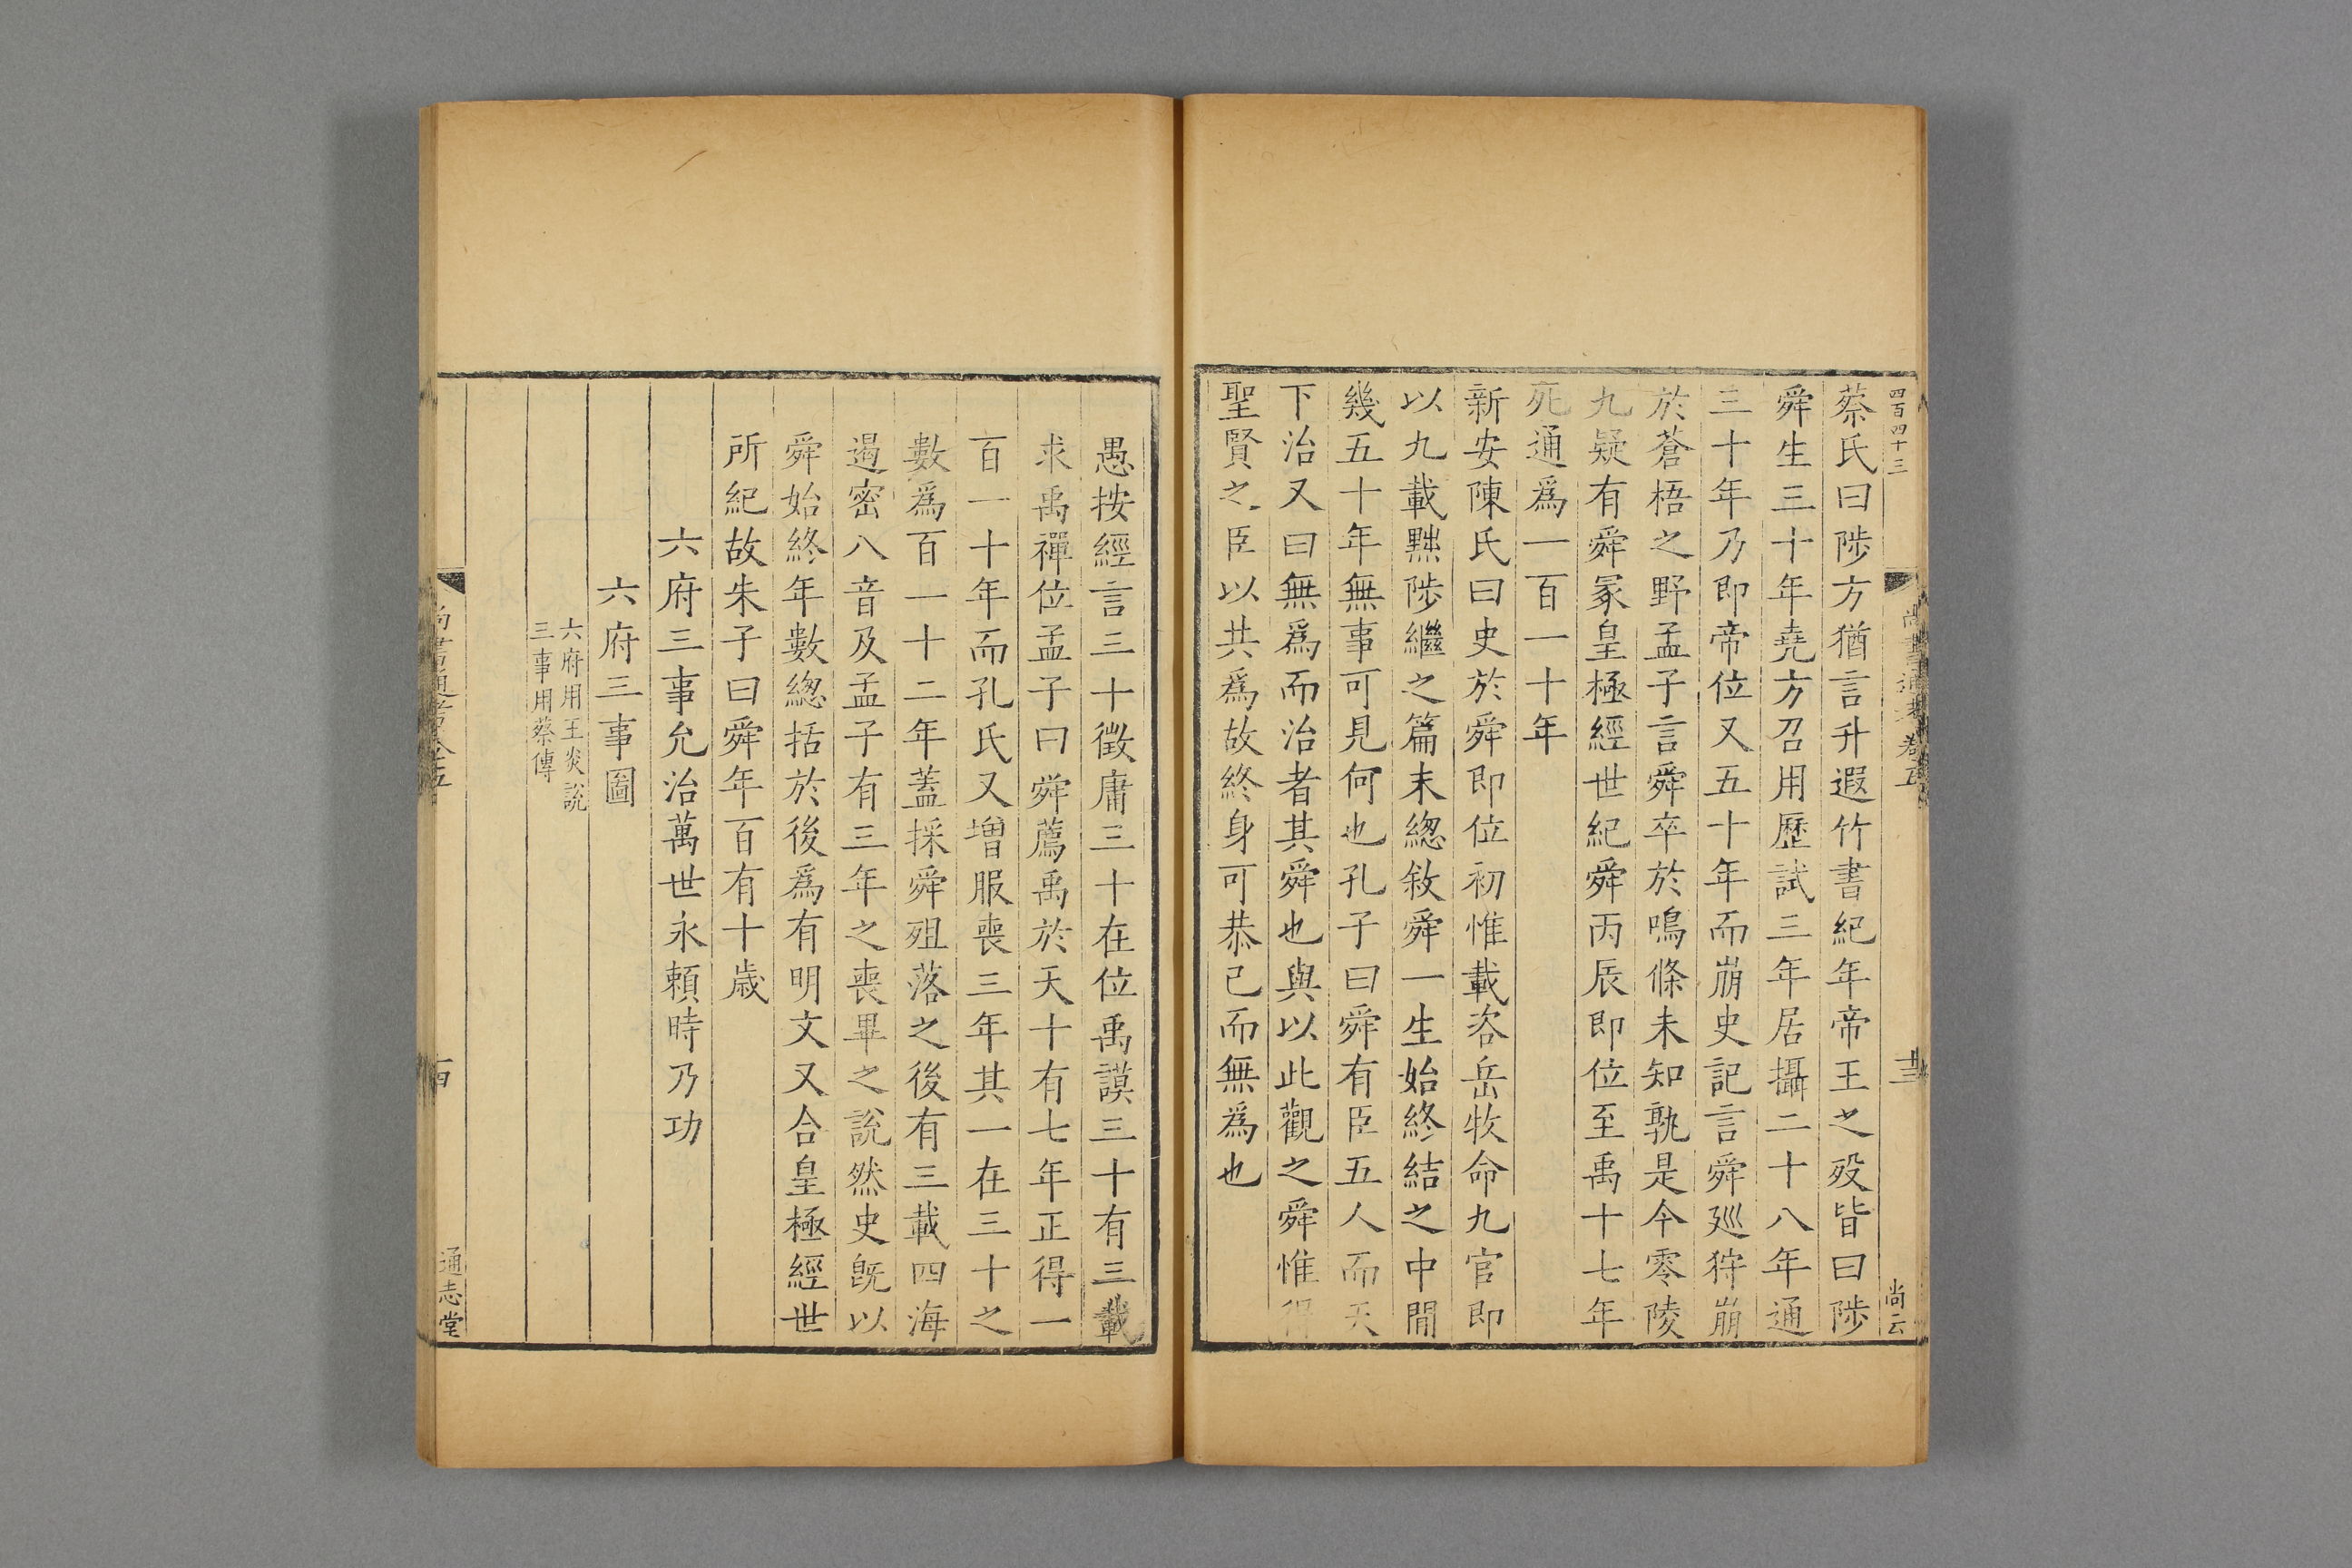 四百四十三
蔡氏曰陟方猶言升遐竹書紀年帝王之殁皆曰陟
舜生三十年堯方召用歷試三年居攝二十八年通
三十年乃即帝位又五十年而崩史記言舜廵狩崩
於蒼梧之野孟子言舜卒於鳴條未知孰是今零陵
九疑有舜冢皇極經世紀舜丙辰即位至禹十七年
死通爲一百一十年
新安陳氏曰史於舜即位初惟載咨岳牧命九官即
以九載黜陟繼之篇末緫敘舜一生始終結之中間
幾五十年無事可見何也孔子曰舜有臣五人而天
下治又曰無爲而治者其舜也與以此觀之舜惟得
聖賢之臣以共爲故終身可恭己而無爲也
尚書通考卷五
十三
尚云
愚按經言三十徵庸三十在位禹謨三十有三載
求禹禪位孟子曰舜薦禹於天十有七年正得一
百一十年而孔氏又增服喪三年其一在三十之
數爲百一十二年蓋採舜殂落之後有三載四海
遏密八音及孟子有三年之喪畢之說然史旣以
舜始終年數緫括於後爲有明文又合皇極經世
所紀故朱子曰舜年百有十歳
六府三事允治萬世永頼時乃功
六府三事圖
六府用王炎說
三事用蔡傳
尚書通考卷五
通志堂